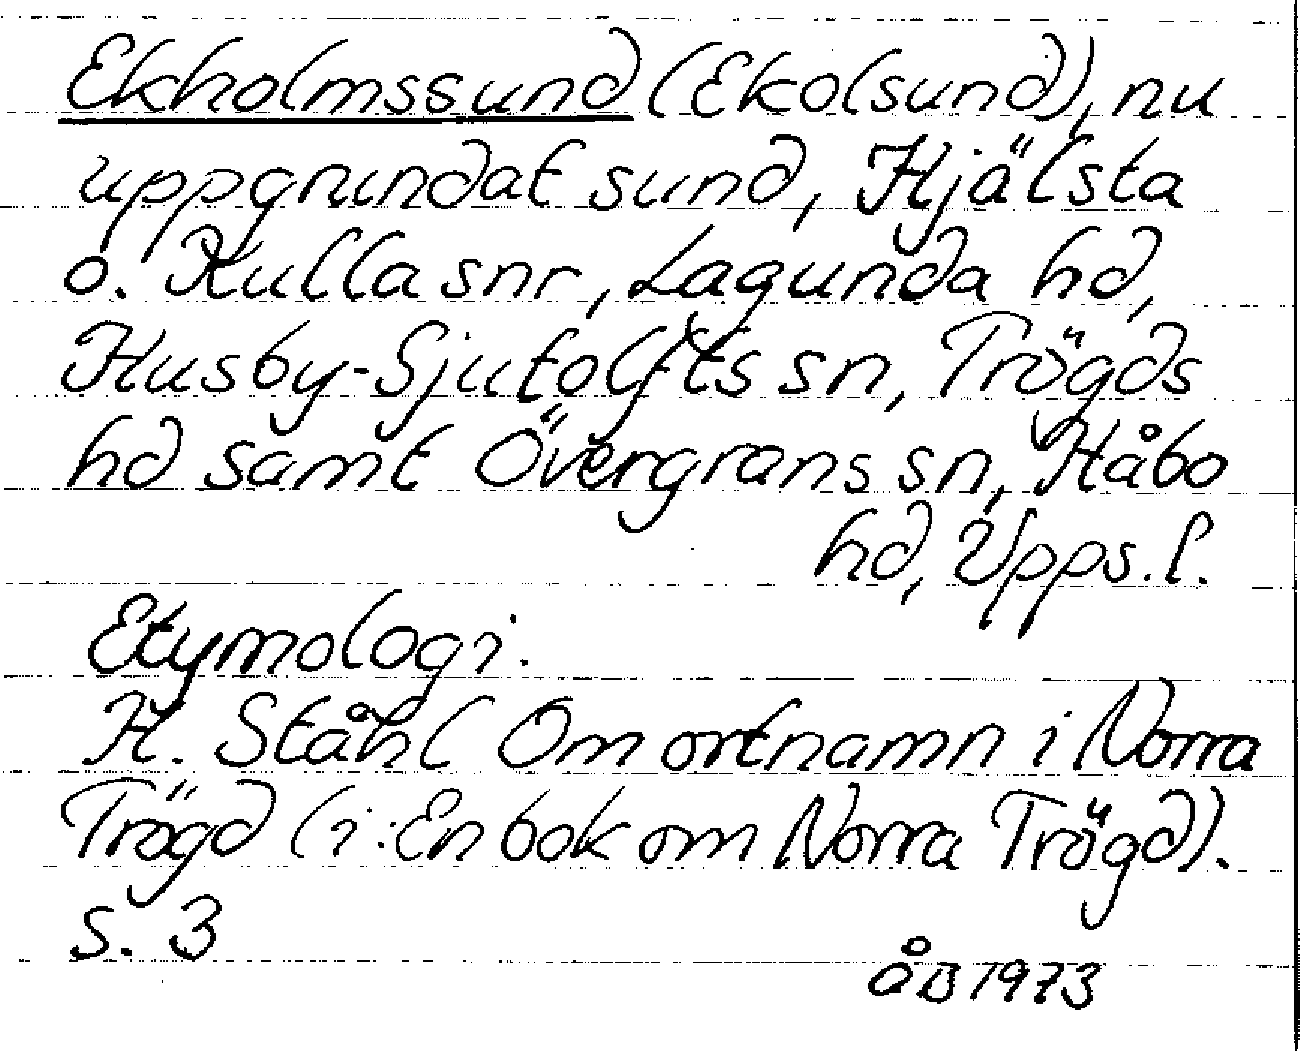 Ekholmssund (Ekolsund), nu
uppgrundat sund, Hjälsta
o. Kulla snr, Lagunda hd,
Husby-Sjutolfts sn, Trögds
hd samt Övergrans sn, Håbo
hd, Upps. l.
Etymologi.
H. Ståhl Om ortnamn i Norra
Trögd (i: En bok om Norra Trögd).
s. 3
ÅB 1973